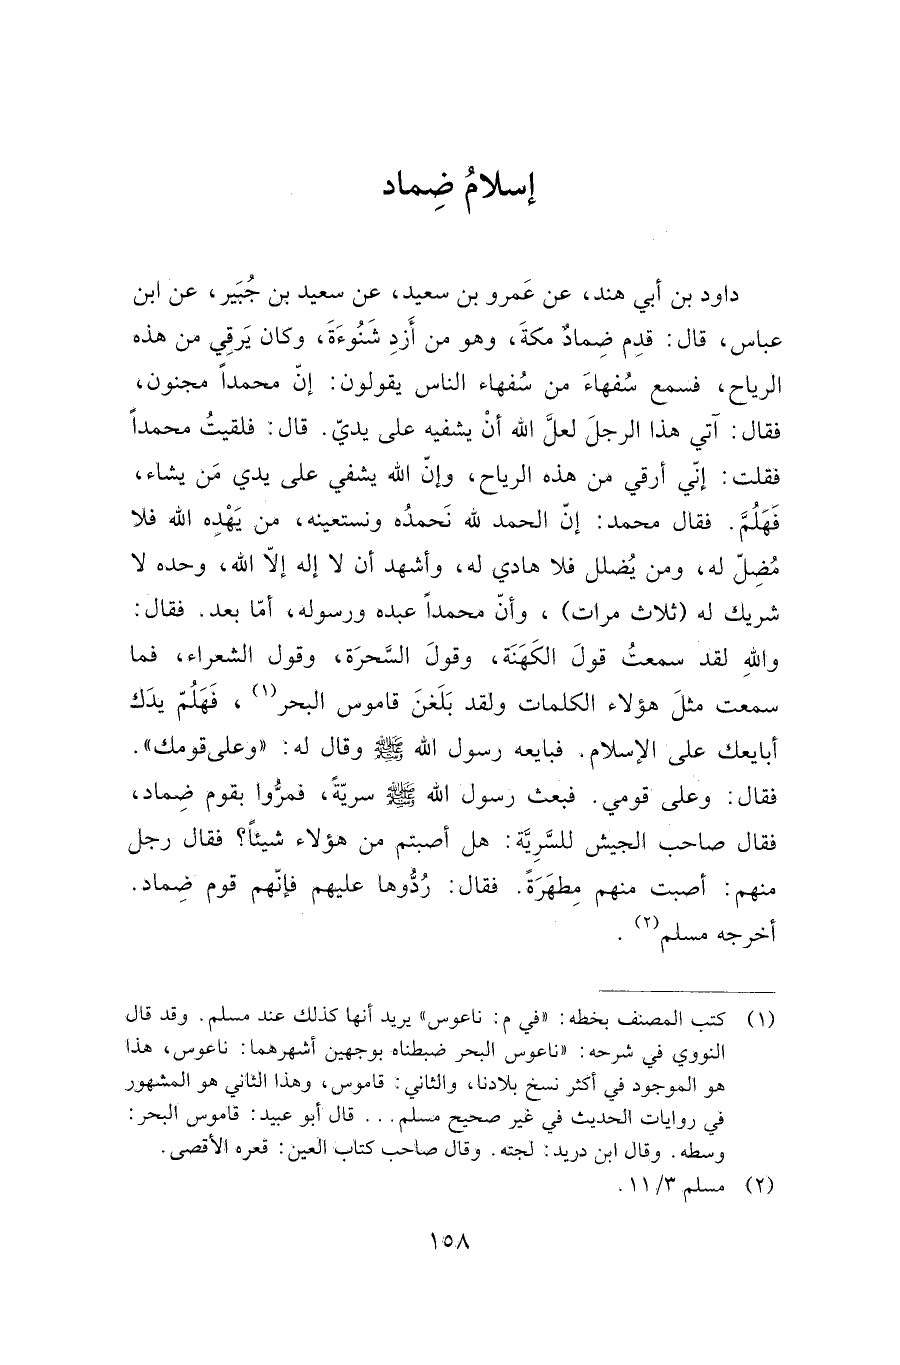 إسلامُ ضِماد
داود بن أبي هند، عن عَمرو بن سعيد، عن سعيد بن جُبَير، عن ابن
عباس، قال: قدِم ضِمادٌ مكةَ، وهو من أَزدِ شَنُوءَةَ، وكان يَرقِي من هذه
الرياح، فسمع سُفهاءَ من سُفهاء الناس يقولون: إنّ محمداً مجنون،
فقال: آتي هذا الرجلَ لعلَّ الله أنْ يشفيه على يديّ. قال: فلقيتُ محمداً
فقلت: إنّي أرقي من هذه الرياح، وإنّ الله يشفي على يدي مَن يشاء،
فَهَلُمَّ. فقال محمد: إنّ الحمد لله نَحمدُه ونستعينه، من يَهْدِه الله فلا
مُضِلّ له، ومن يُضلل فلا هادي له، وأشهد أن لا إله إلاّ الله، وحده لا
شريك له (ثلاث مرات) ، وأنّ محمداً عبده ورسوله، أمّا بعد. فقال:
واللهِ لقد سمعتُ قولَ الكَهَنَة، وقولَ السَّحرَة، وقول الشعراء، فما
سمعت مثلَ هؤلاء الكلمات ولقد بَلَغنَ قاموس البحر(١) ، فَهَلُمّ يدَك
أبايعك على الإسلام. فبايعه رسول الله ﷺ وقال له: «وعلى قومك».
فقال: وعلى قومي. فبعث رسول الله ﷺ سريّةً، فمرُّوا بقوم ضِماد،
فقال صاحب الجيش للسَّرِيَّة: هل أصبتم من هؤلاء شيئاً؟ فقال رجل
منهم: أصبت منهم مِطهَرَةً. فقال: رُدُّوها عليهم فإنّهم قوم ضِماد.
أخرجه مسلم(٢) .
(١) كتب المصنف بخطه: «في م: ناعوس» يريد أنها كذلك عند مسلم. وقد قال
النووي في شرحه: «ناعوس البحر ضبطناه بوجهين أشهرهما: ناعوس، هذا
هو الموجود في أكثر نسخ بلادنا، والثاني: قاموس، وهذا الثاني هو المشهور
في روايات الحديث في غير صحيح مسلم... قال أبو عبيد: قاموس البحر:
وسطه. وقال ابن دريد: لجته. وقال صاحب كتاب العين: قعره الأقصى.
(٢) مسلم ١١/٣.
١٥٨